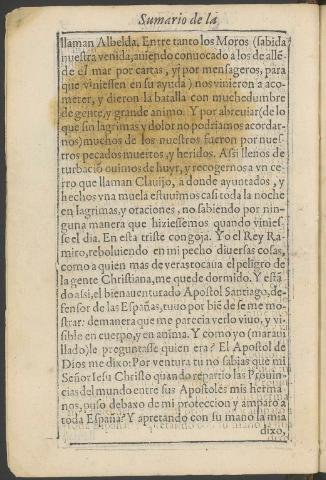 Sumario de la
llaman Albelda. Entre tanto los Moros (sabida
nuestra venida, auiendo conuocado a los de allē-
de el mar por cartas, y por mensageros, para
que viniessen en su ayuda) nos vinieron a aco-
meter, y dieron la batalla con muchedumbre
de gente, y grande animo. Y por abreuiar (de lo
que sin lagrimas y dolor no podriamos acordar-
nos) muchos de los nuestros fueron por nues-
tros pecados muertos, y heridos. Assi llenos de
turbaciō ouimos de huyr, y recogernos a vn ce-
rro que llaman Clauijo, a donde ayuntados, y
hechos vna muela estuuimos casi toda la noche
en lagrimas, y oraciones, no sabiendo por nin-
guna manera que hiziessemos quando vinies-
se el dia. En esta triste congoja. Yo el Rey Ra-
miro, reboluiendo en mi pecho diuersas cosas,
como a quien mas de veras tocaua el peligro de
la gente Christiana, me quede dormido. Y estā
do assi, el bienauenturado Apostol Santiago, de-
fensor de las Españas, tuuo por biē de se me mo-
strar: demanera que me parecia verlo viuo, y vi-
sible en cuerpo, y en anima. Y como yo (maraui
llado) le preguntasse quien era? El Apostol de
Dios me dixo: Por ventura tu no sabias que mi
Señor Iesu Christo quando repartio las Prouin-
cias del mundo entre sus Apostoles mis herma
nos, puso debaxo de mi proteccion y amparo a
toda España? Y apretando con su mano la mia
dixo,